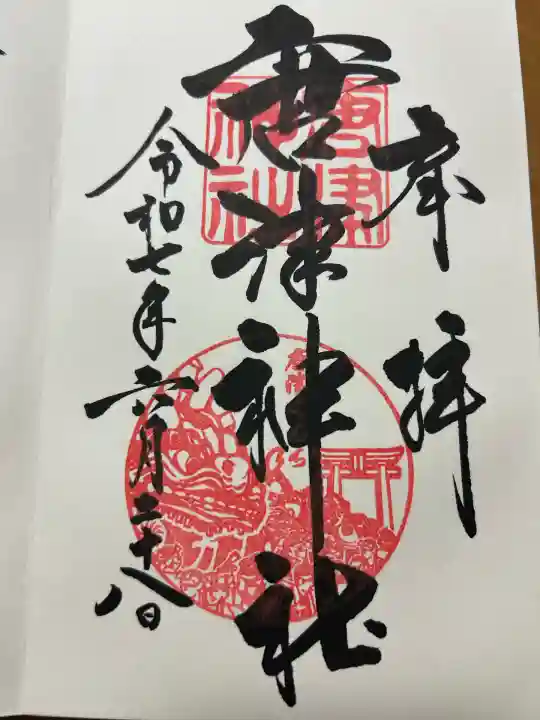 奉拝
唐津神社
令和七年六月二十八日
唐津
神社